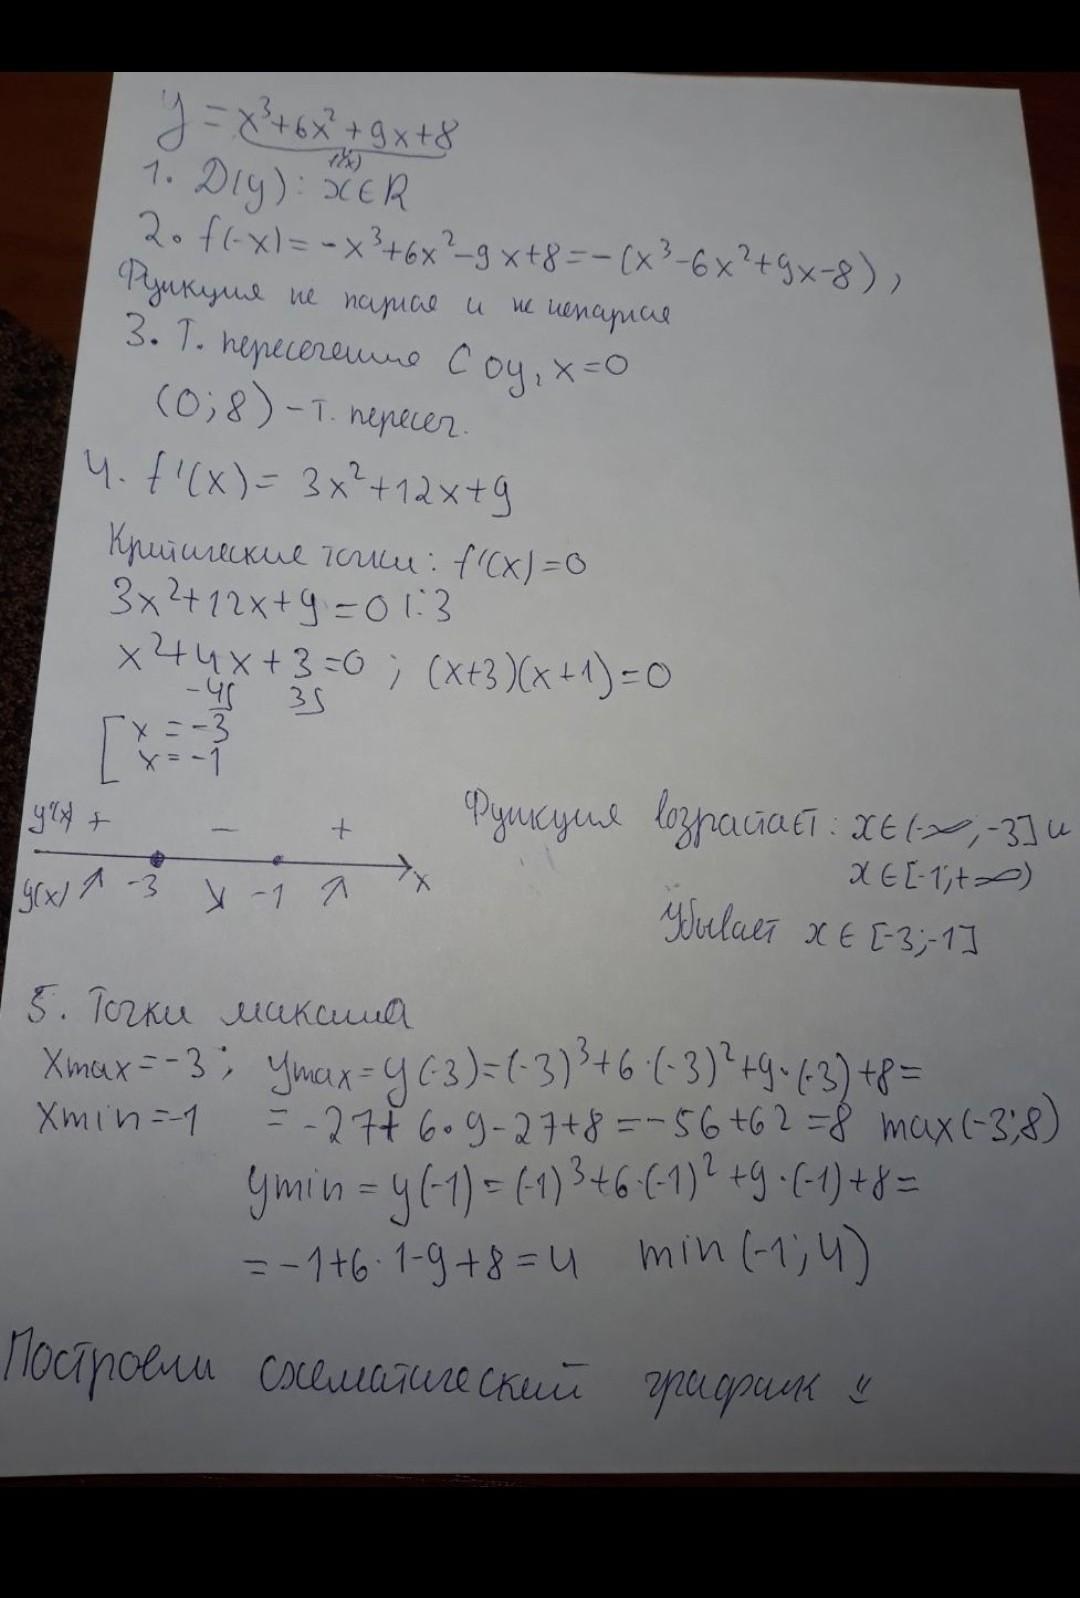 y = x³+6x²+9x+8
f(x)
1. D(y): x∈R
2. f(-x)= -x³+6x²-9x+8=-(x³-6x²+9x-8),
Функция не парная и не непарная
3. Т. пересечения С oy, x=0
(0;8) - т. пересеч.
4. f'(x)= 3x²+12x+9
Критические точки: f'(x)=0
3x²+12x+9=0 |:3
x²+4x+3=0 ; (x+3)(x+1)=0
-4 3
[x=-3
x=-1
y'(x) + - +
y(x) ↗ -3 ↘ -1 ↗ x
Функция возрастает: x∈(-∞;-3] и
x∈[-1;+∞)
Убывает x∈[-3;-1]
5. Точки максима
xmax=-3; ymax=y(-3)=(-3)³+6·(-3)²+9·(-3)+8=
xmin=-1 =-27+6·9-27+8=-56+62=8 max(-3;8)
ymin=y(-1)=(-1)³+6·(-1)²+9·(-1)+8=
=-1+6·1-9+8=4 min(-1;4)
Построели схематический график